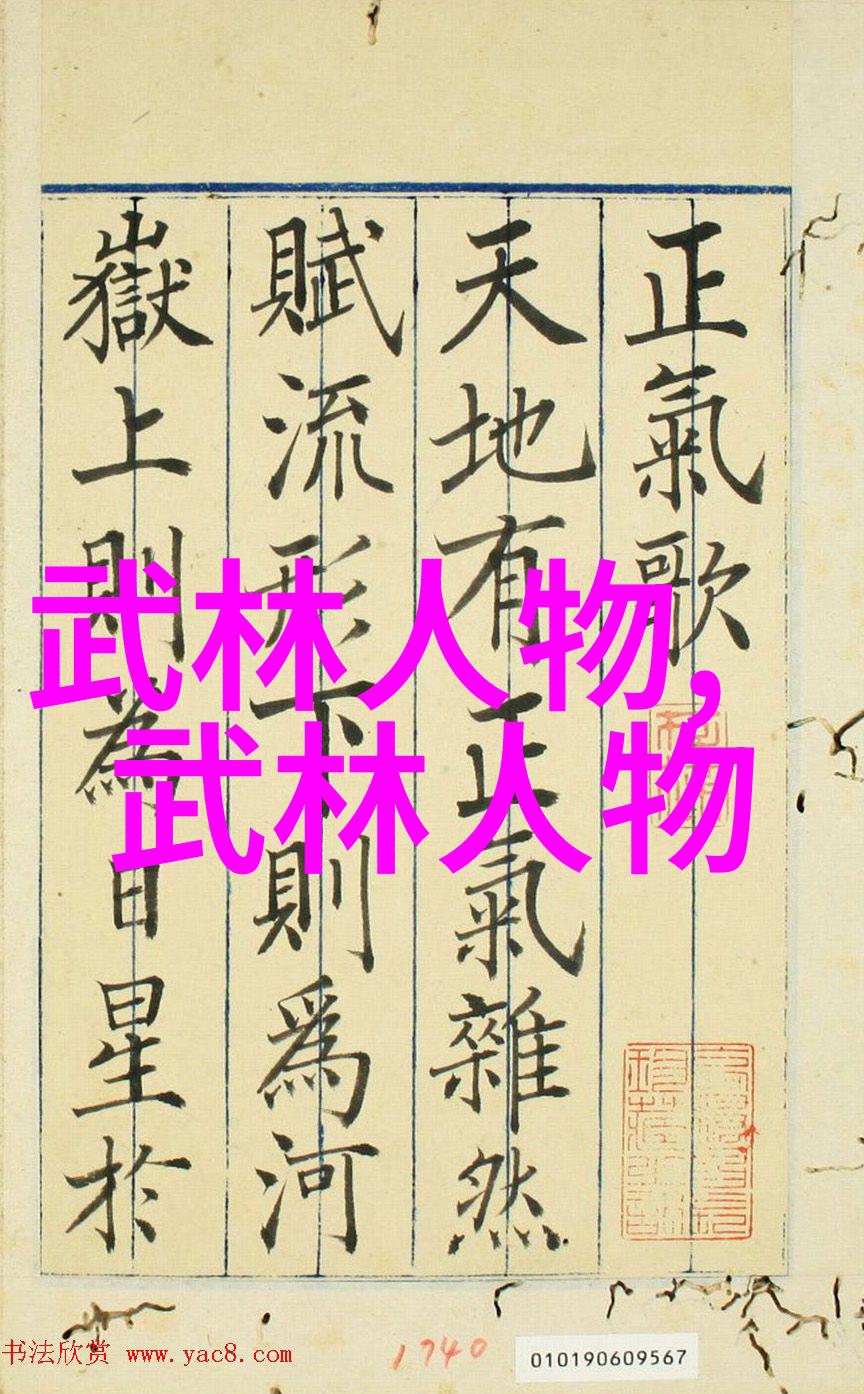 正氣歌
天地有正氣雜然
賦流形下則爲河
嶽上則為日星於
武林人物,
武林人物
书法欣赏 www.yac8.com
1740
010190609567